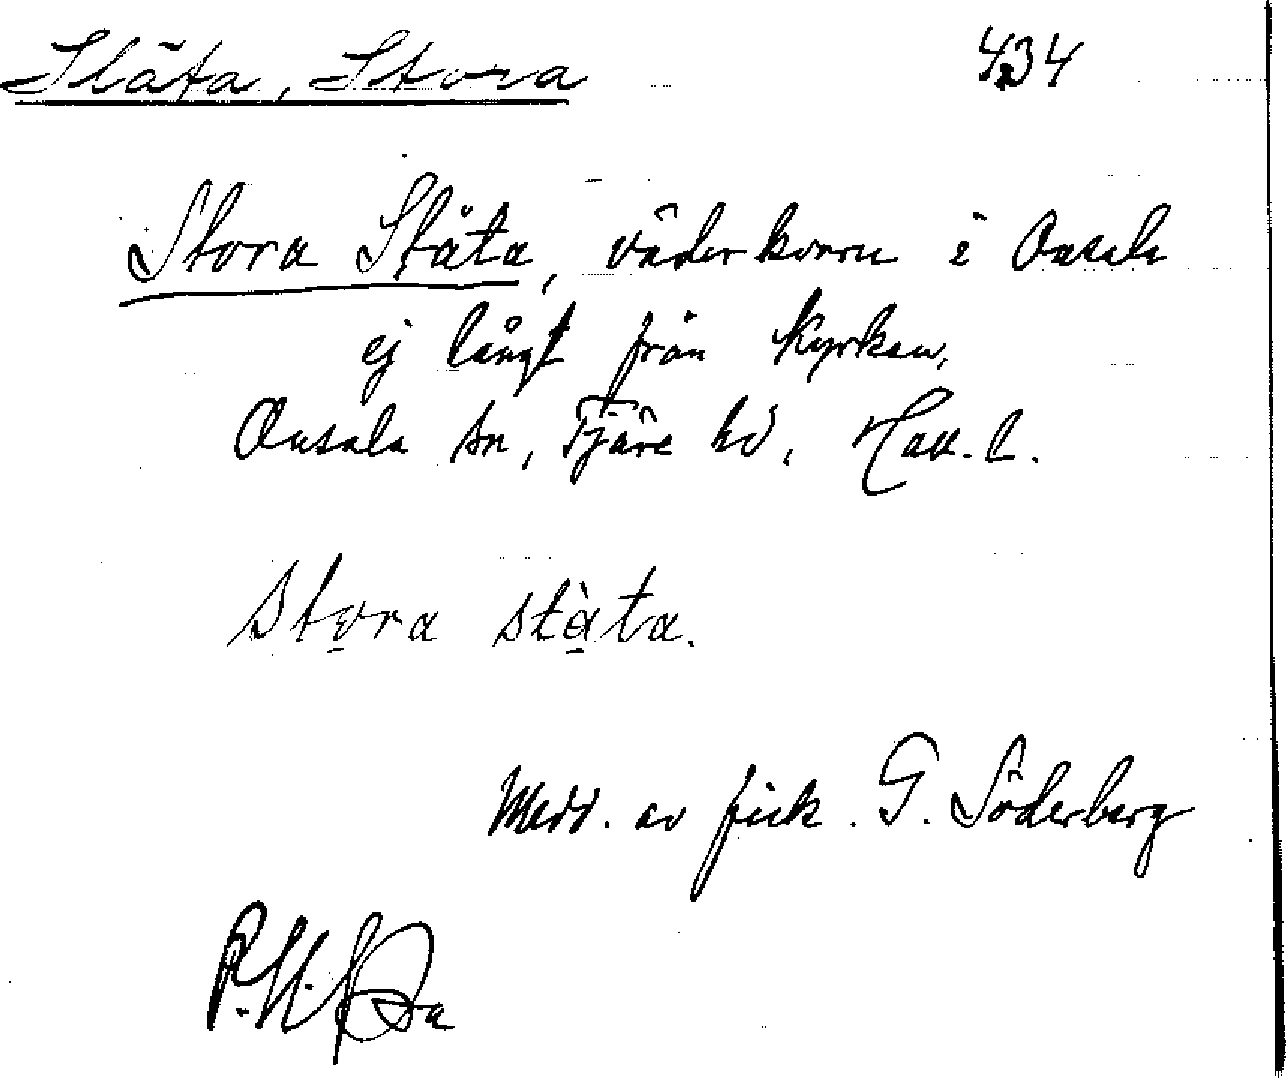 Stäta, Stora 434
Stora Stäta, väderkvarn i Onsala
ej långt från kyrkan,
Onsala sn, Fjäre hd, Hall. l.
stora stàta.
Medd. av fisk. G. Söderberg